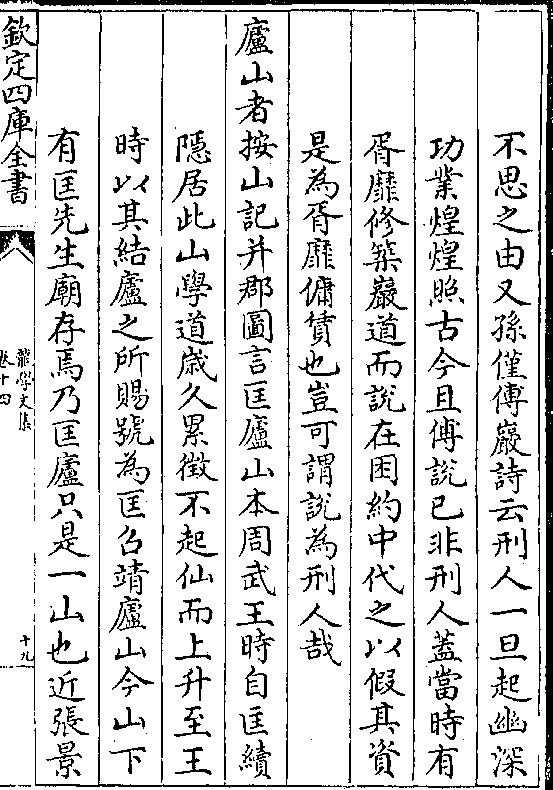 不思之由又孫僅傅巖詩云刑人一旦起幽深
功業煌煌照古今且傅說已非刑人蓋當時有
胥靡修築巖道而說在困約中代之以假其資
是為胥靡傭賃也豈可謂說為刑人哉
廬山者按山記并郡圖言匡廬山本周武王時自匡續
隱居此山學道歲久累徵不起仙而上升至王
時以其結廬之所賜號為匡㕥靖廬山今山下
有匡先生廟存焉乃匡廬只是一山也近張景
欽定四庫全書
龍學文集
卷十四
十九